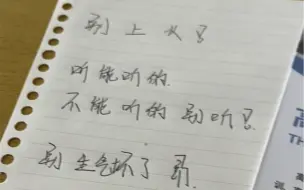 别上火
听能听的.
不能听的 别听
别生气坏了